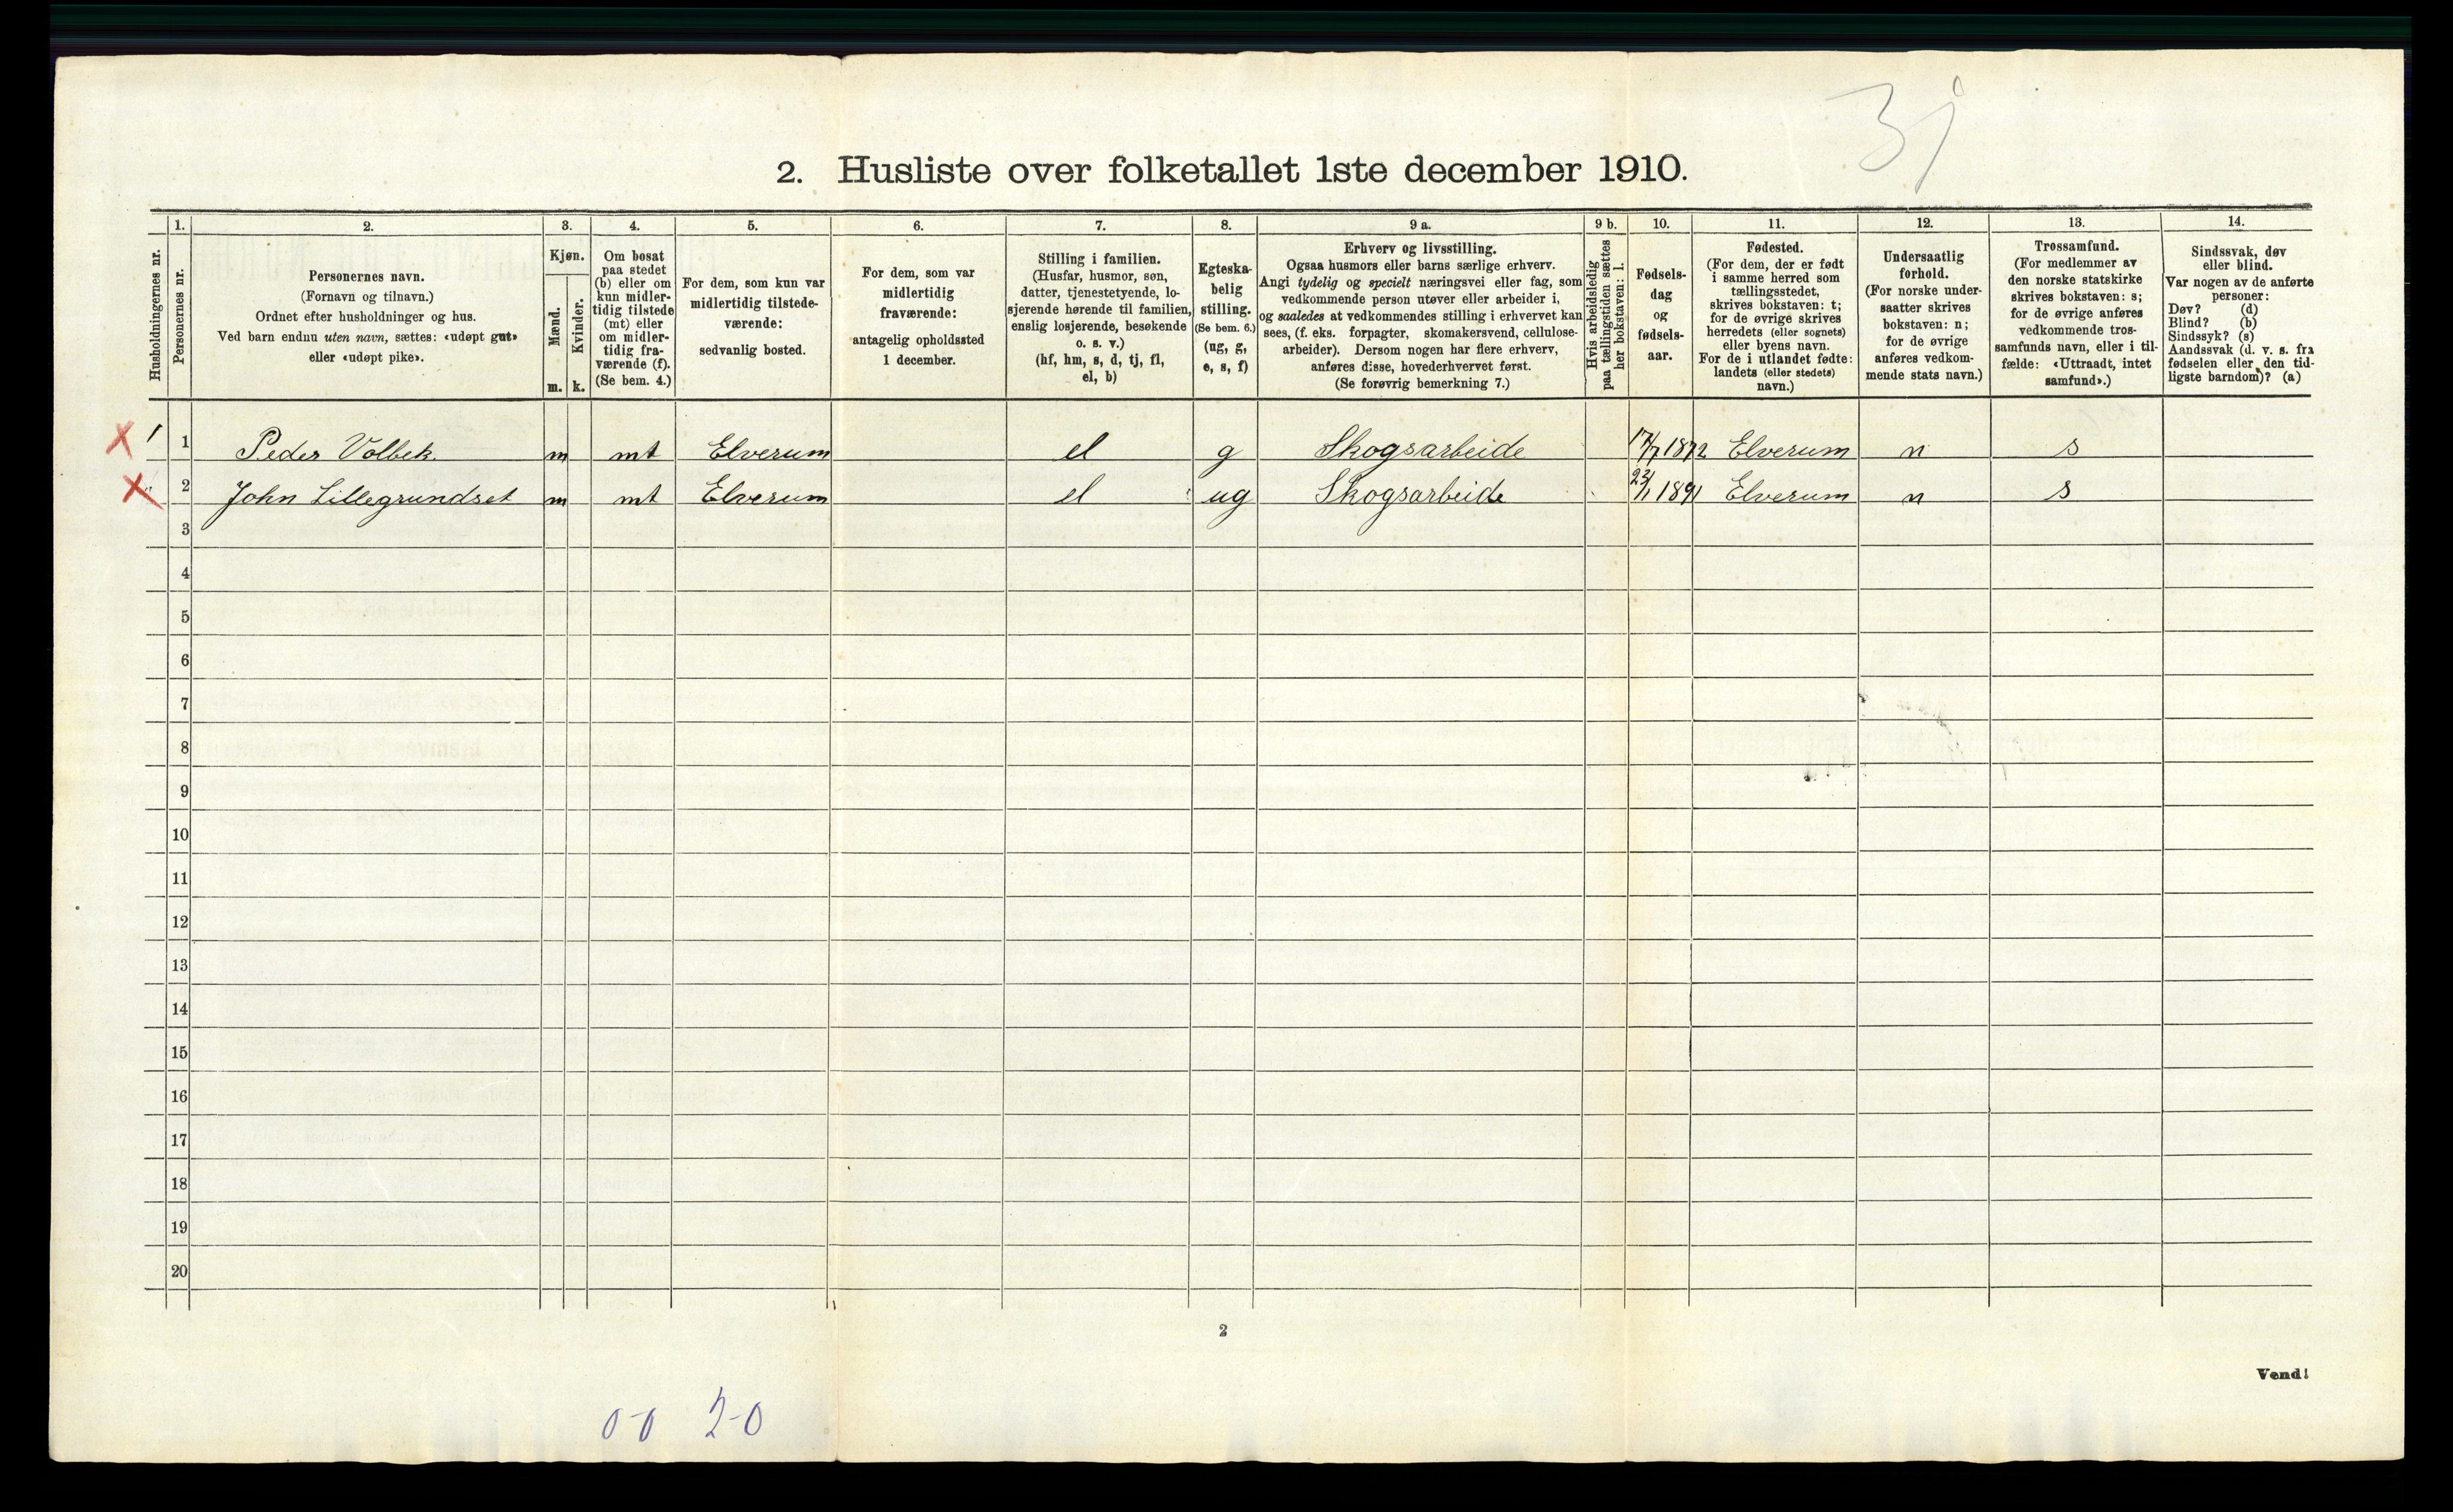 3j
2. Husliste over folketallet 1ste december 1910.
Husholdningernes nr.
1.
Personernes nr.
2.
Personernes navn.
(Fornavn og tilnavn.)
Ordnet efter husholdninger og hus.
Ved barn endnu uten navn, sættes: «udøpt gut»
eller «udøpt pike».
3.
Kjøn.
Mænd.
m.
Kvinder.
k.
4.
Om bosat
paa stedet
(b) eller om
kun midler-
tidig tilstede
(mt) eller
om midler-
tidig fra-
værende (f).
(Se bem. 4.)
5.
For dem, som kun var
midlertidig tilstede-
værende:
sedvanlig bosted.
6.
For dem, som var
midlertidig
fraværende:
antagelig opholdssted
1 december.
7.
Stilling i familien.
(Husfar, husmor, søn,
datter, tjenestetyende, lo-
sjerende hørende til familien,
enslig losjerende, besøkende
o. s. v.)
(hf, hm, s, d, tj, fl,
el, b)
8.
Egteska-
belig
stilling.
(Se bem. 6.)
(ug, g,
e, s, f)
9 a.
Erhverv og livsstilling.
Ogsaa husmors eller barns særlige erhverv.
Angi tydelig og specielt næringsvei eller fag, som
vedkommende person utøver eller arbeider i,
og saaledes at vedkommendes stilling i erhvervet kan
sees, (f. eks. forpagter, skomakersvend, cellulose-
arbeider). Dersom nogen har flere erhverv,
anføres disse, hovederhvervet først.
(Se forøvrig bemerkning 7.)
9 b.
Hvis arbeidsledig
paa tællingstiden sættes
her bokstaven: l.
10.
Fødsels-
dag
og
fødsels-
aar.
11.
Fødested.
(For dem, der er født
i samme herred som
tællingsstedet,
skrives bokstaven: t;
for de øvrige skrives
herredets (eller sognets)
eller byens navn.
For de i utlandet fødte:
landets (eller stedets)
navn.)
12.
Undersaatlig
forhold.
(For norske under-
saatter skrives
bokstaven: n;
for de øvrige
anføres vedkom-
mende stats navn.)
13.
Trossamfund.
(For medlemmer av
den norske statskirke
skrives bokstaven: s;
for de øvrige anføres
vedkommende tros-
samfunds navn, eller i til-
fælde: «Uttraadt, intet
samfund».)
14.
Sindssvak, døv
eller blind.
Var nogen av de anførte
personer:
Døv? (d)
Blind? (b)
Sindssyk? (s)
Aandssvak (d. v. s. fra
fødselen eller den tid-
ligste barndom)? (a)
X 1 1 Peder Volbek. m mt Elverum el g Skogsarbeide 17/7 1872 Elverum n s
X " 2 John Lillegrundset m mt Elverum el ug Skogsarbeide 23/1 1891 Elverum n s
3
4
5
6
7
8
9
10
11
12
13
14
15
16
17
18
19
20
2
Vend!
0-0 2-0